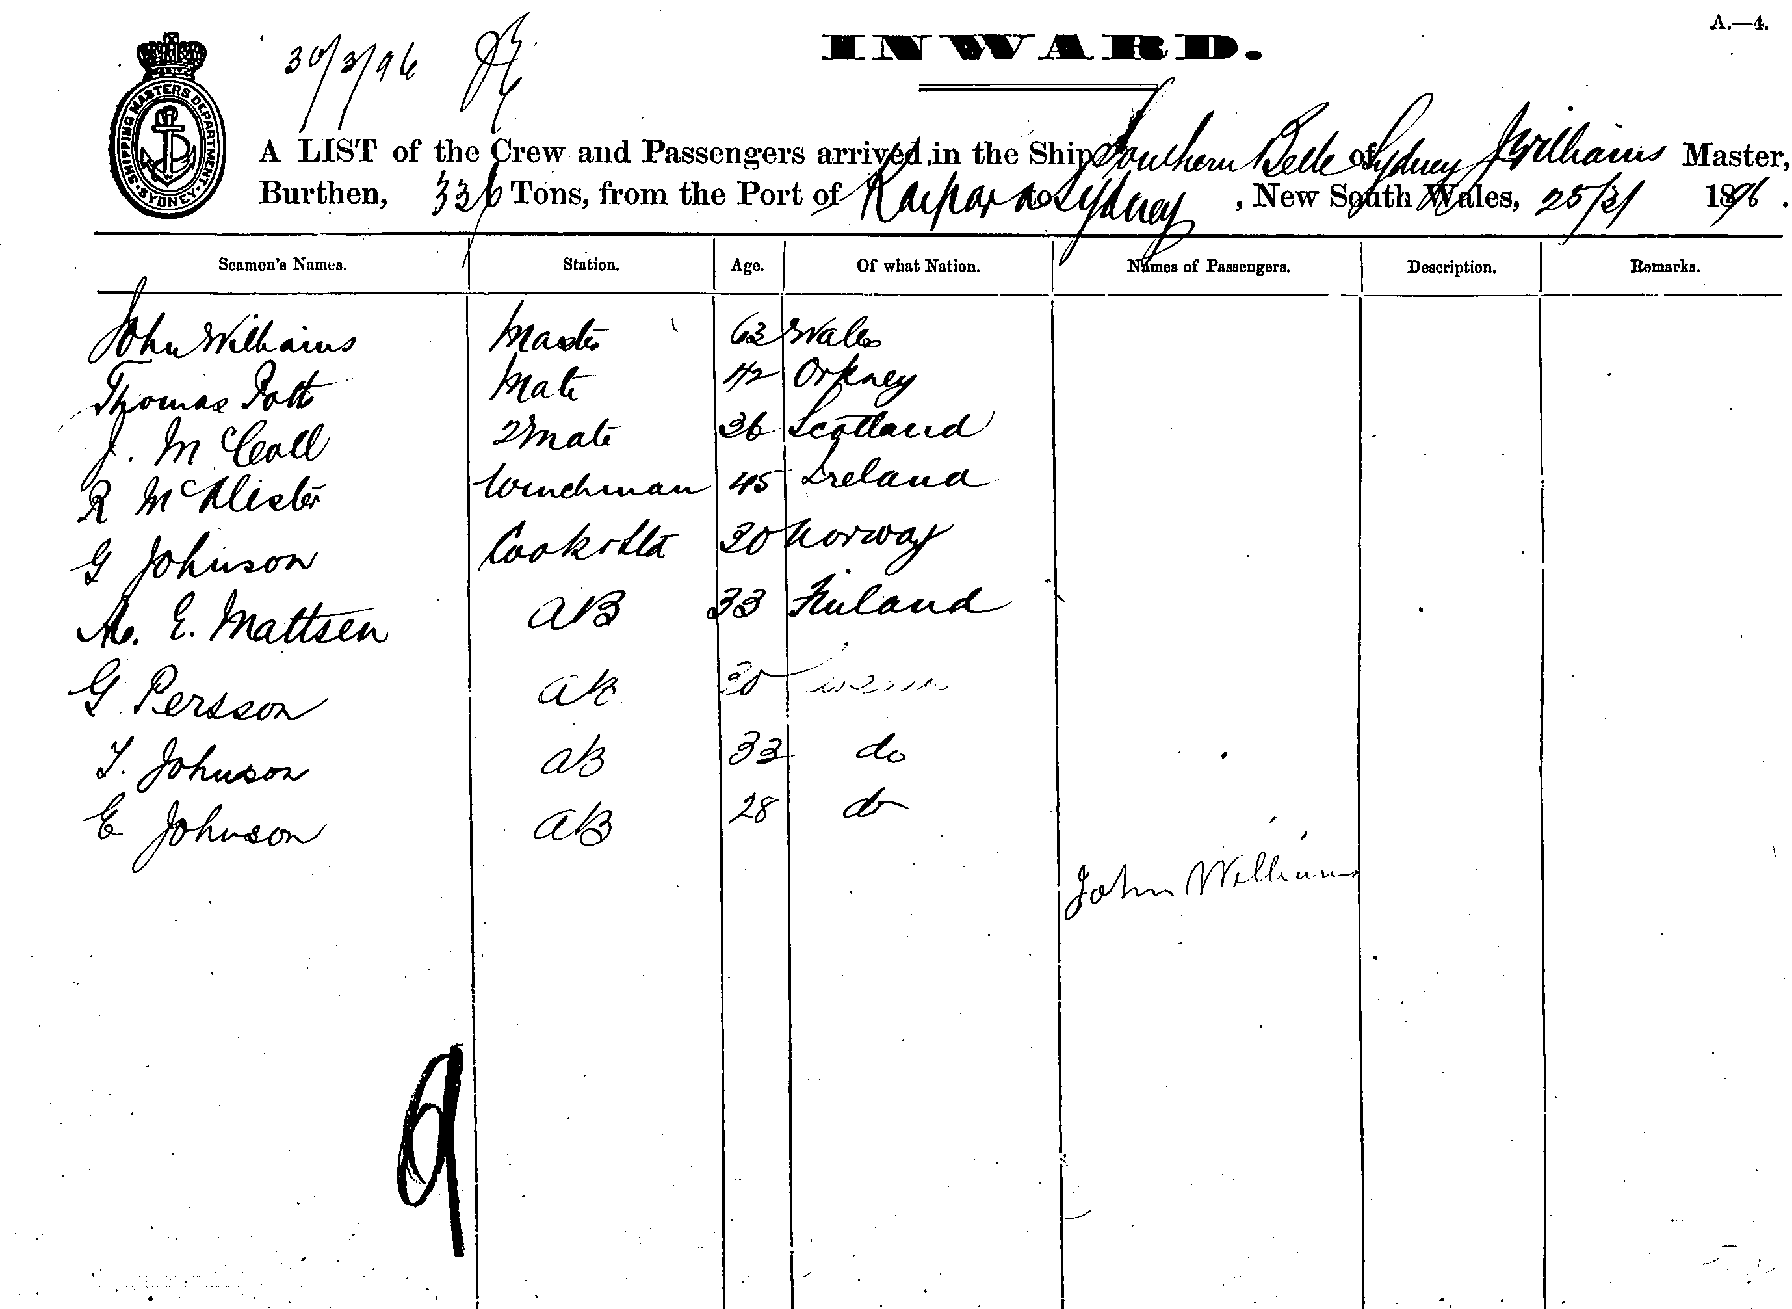 A.—4.
30/3/96
INWARD.
SHIPPING MASTERS DEPARTMENT SYDNEY
A LIST of the Crew and Passengers arrived in the Ship Southern Belle of Sydney J Williams Master,
Burthen, 336 Tons, from the Port of Kaipara to Sydney, New South Wales, 25/3/ 1896.
Seamen's Names. Station. Age. Of what Nation. Names of Passengers. Description. Remarks.
John Williams Master 63 Wales
Thomas Pott Mate 42 Orkney
J. McColl 2 Mate 36 Scotland
R McAlister Winchman 45 Ireland
G Johnson Cook & Std 30 Norway
E. Mattsen AB 33 Finland
G Persson AB 30
T. Johnson AB 33 do
E Johnson AB 28 do
John Williams
9